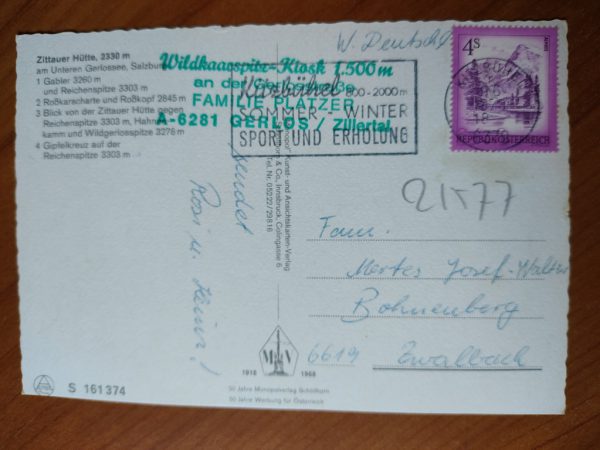 Zittauer Hütte, 2330 m
am Unteren Gerlossee, Salzburg
1 Gabler 3260 m
und Reichenspitze 3303 m
2 Roßkarscharte und Roßkopf 2845 m
3 Blick von der Zittauer Hütte gegen
Reichenspitze 3303 m, Hahn
kamm und Wildgerlosspitze 3278 m
4 Gipfelkreuz auf der
Reichenspitze 3303 m
Wildkaarspitz-Kiosk 1.500m
an der
FAMILIE PLATZER
A-6281 GERLOS / Zillertal
Kitzbühel 800-2000m
SOMMER - WINTER
SPORT UND ERHOLUNG
W. Deutschl
4S
REPUBLIK ÖSTERREICH
21577
sendet
Rosi u. Heinz!
Kunst- und Ansichtskarten-Verlag
& Co., Innsbruck, Colingasse 6
Tel. Nr. 05222/29816
Fam.
Mertes Josef-Walter
Bohnenberg
6619 Zwalbach
1918 1968
50 Jahre Monopolverlag Schöllhorn
50 Jahre Werbung für Österreich
S 161374